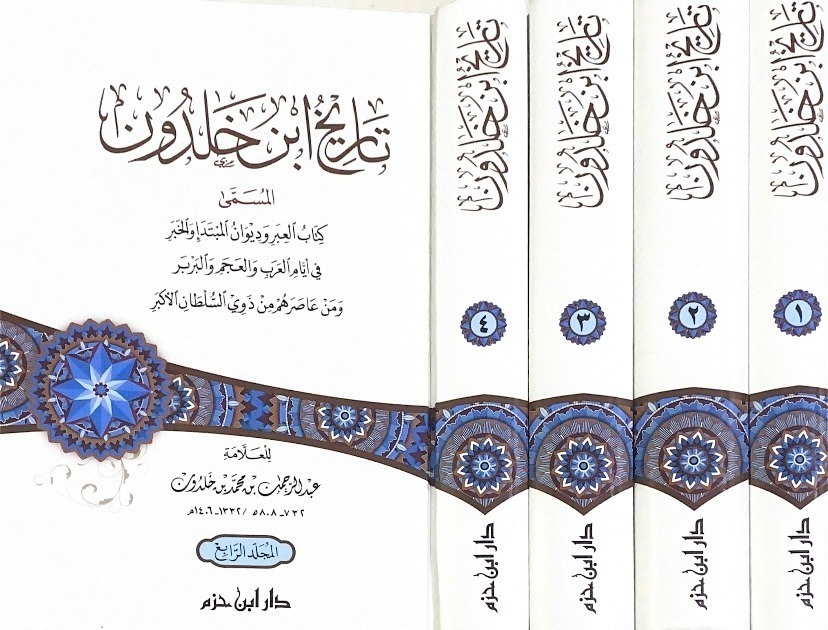 تاريخ ابن خلدون
المسمى
كتاب العبر وديوان المبتدإ والخبر
في أيام العرب والعجم والبربر
ومن عاصرهم من ذوي السلطان الأكبر
للعلامة
عبد الرحمن بن محمد بن خلدون
٧٣٢-٨٠٨هـ / ١٣٣٢-١٤٠٦م
المجلد الرابع
دار ابن حزم
تاريخ ابن خلدون
٤
دار ابن حزم
تاريخ ابن خلدون
٣
دار ابن حزم
تاريخ ابن خلدون
٢
دار ابن حزم
تاريخ ابن خلدون
١
دار ابن حزم